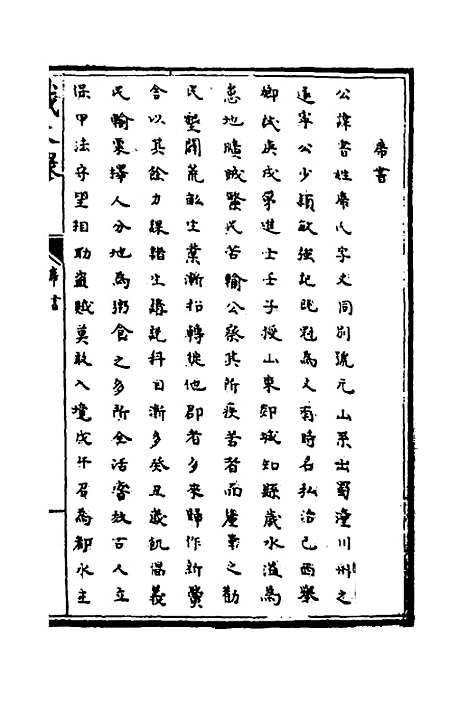 席書
公諱書姓席氏字文同别號元山系出蜀潼川州之
遂寧公少穎敏強記既冠為文有時名弘治己酉舉
鄉試庚戌第進士壬子授山東郯城知縣歲水溢為
患地曠賦繁民苦輸公祭其所疾苦者而蘆葦之勸
民墾闢荒畝生業漸拓轉徙他郡者多來歸作新黌
舍以其餘力課諸生講説科目漸多癸丑歲飢倡義
民輸粟擇人分地為粥食之多所全活嘗放古人立
保甲法守望相助盗賊莫敢入境戊午召為都水主
席書